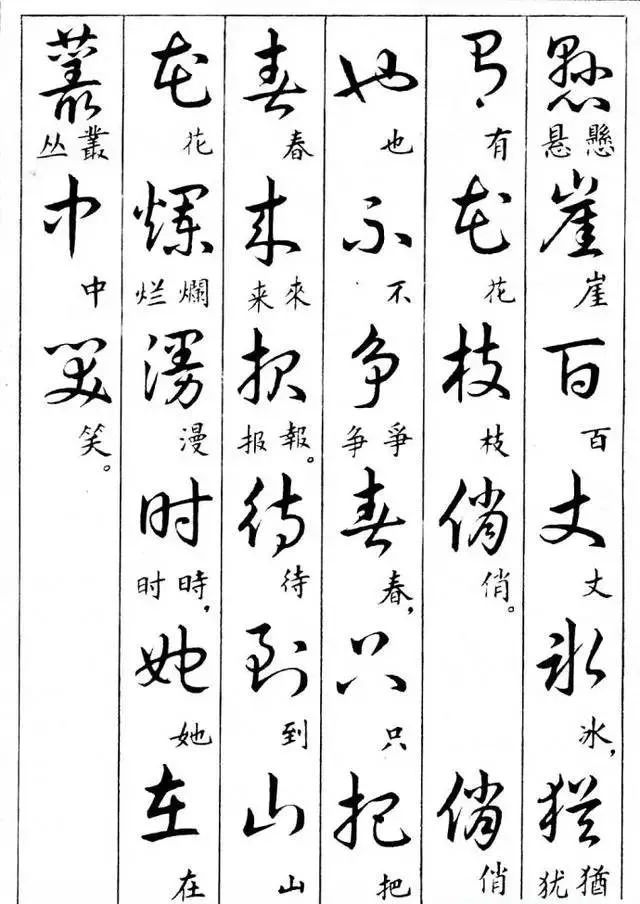 懸崖百丈冰猶
懸悬 崖 百 丈 冰， 猶犹
有花枝俏俏
有 花 枝 俏。 俏
也不争春只把
也 不 爭争 春， 只 把
春来报待到山
春 來来 報报。 待 到 山
花烂漫时她在
花 爛烂 漫 時时， 她 在
叢中笑
叢丛 中 笑。